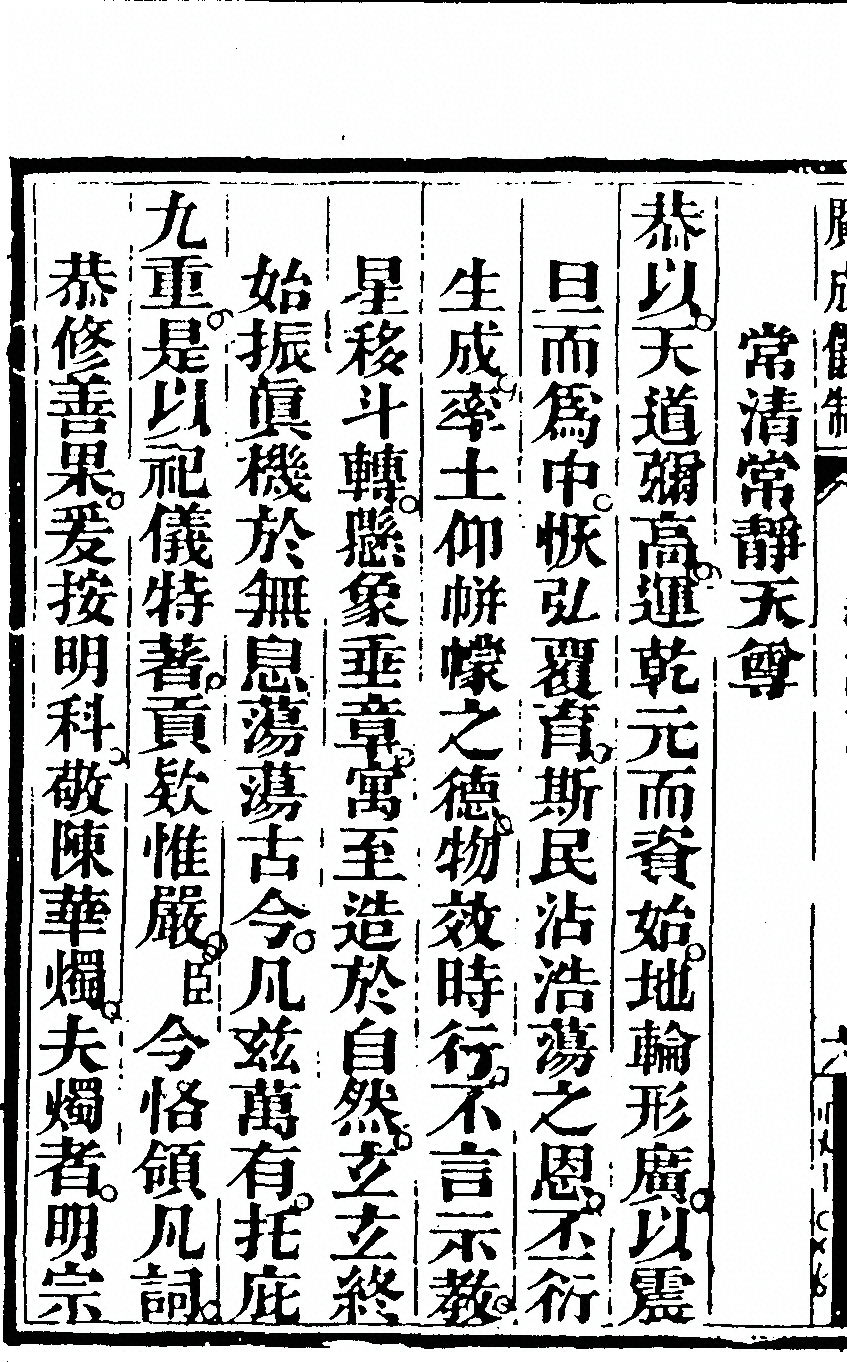 廣成儀制
常清常靜天尊
恭以天道彌高運乾元而資始地輪形廣以震
旦而爲中恢弘覆育斯民沾浩蕩之恩丕衍
生成率土仰帡幪之德物效時行不言示教
星移斗轉懸象垂章寓至造於自然立立終
始振眞機於無息蕩蕩古今凡茲萬有托庇
九重是以祀儀特著貢欵惟嚴臣今恪領凡詞
恭修善果爰按明科敬陳華燭夫燭者明宗